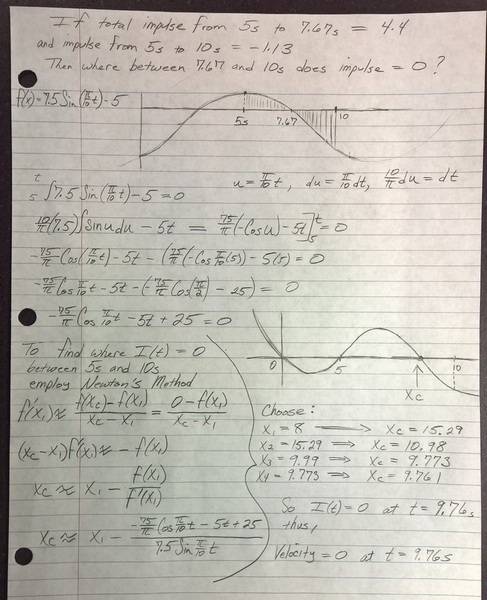 If total impulse from 5s to 7.67s = 4.4
and impulse from 5s to 10s = -1.13
Then where between 7.67 and 10s does impulse = 0?
f(t) = 7.5 Sin(π/10 t) - 5
5s 7.67 10
u = π/10 t, du = π/10 dt, 10/π du = dt
t
5 ∫ 7.5 Sin(π/10 t) - 5 = 0
10/π (7.5) ∫ Sin u du - 5t = 75/π (-Cos u) - 5t]₅ᵗ = 0
-75/π Cos(π/10 t) - 5t - (75/π (-Cos π/10 (5)) - 5(5)) = 0
-75/π Cos π/10 t - 5t - (-75/π Cos(π/2) - 25) = 0
-75/π Cos π/10 t - 5t + 25 = 0
To find where I(t) = 0
between 5s and 10s
employ Newton's Method
f'(x₁) ≈ f(xc) - f(x₁) / xc - x₁ = 0 - f(x₁) / xc - x₁
(xc - x₁) f'(x₁) ≈ - f(x₁)
xc ≈ x₁ - f(x₁) / f'(x₁)
xc ≈ x₁ - -75/π Cos π/10 t - 5t + 25 / 7.5 Sin π/10 t
0 5 10
xc
Choose:
x₁ = 8 → xc = 15.29
x₂ = 15.29 ⇒ xc = 10.98
x₃ = 9.99 ⇒ xc = 9.773
x₄ = 9.773 ⇒ xc = 9.761
So I(t) = 0 at t = 9.76s
thus,
Velocity = 0 at t = 9.76s